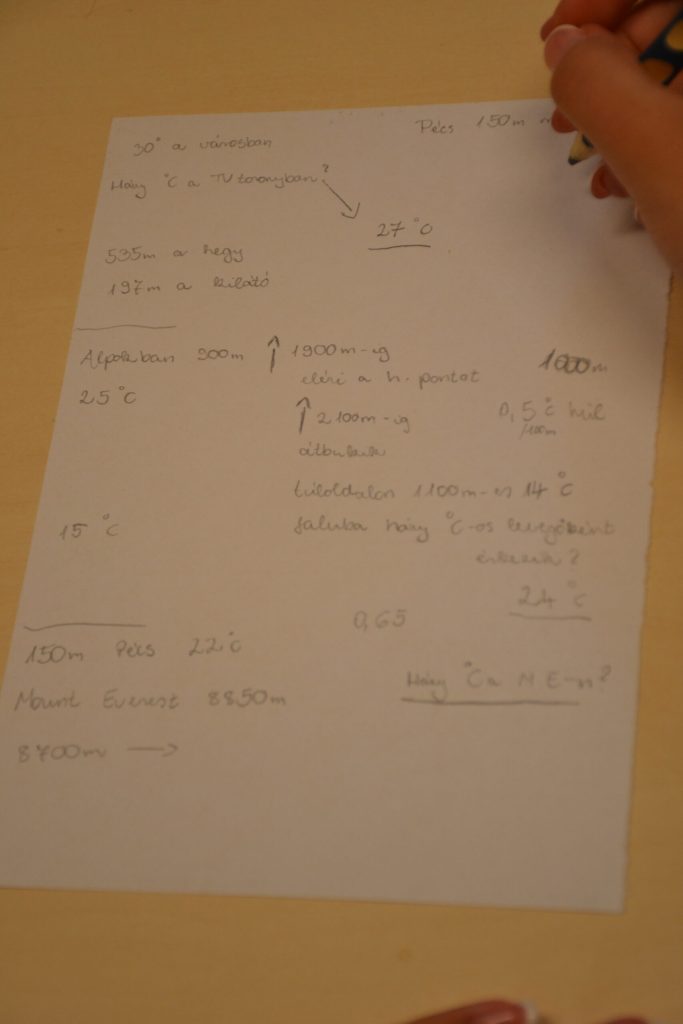 Pécs 150m
30° a városban
Hány °C a TV toronyban?
27 °C
535m a hegy
197m a kilátó
Alpokban 900m ↑ 1900m-ig 1000m
eléri a h. pontot
25 °C
0,5 °C hűl
/100m
↑ 2100m-ig
átbukik
túloldalon 1100m-en 14 °C
15 °C
faluba hány °C-os levegőként
érkezik?
24 °C
0,65
150m Pécs 22 °C
Hány °C a M E-n?
Mount Everest 8850m
8700m →